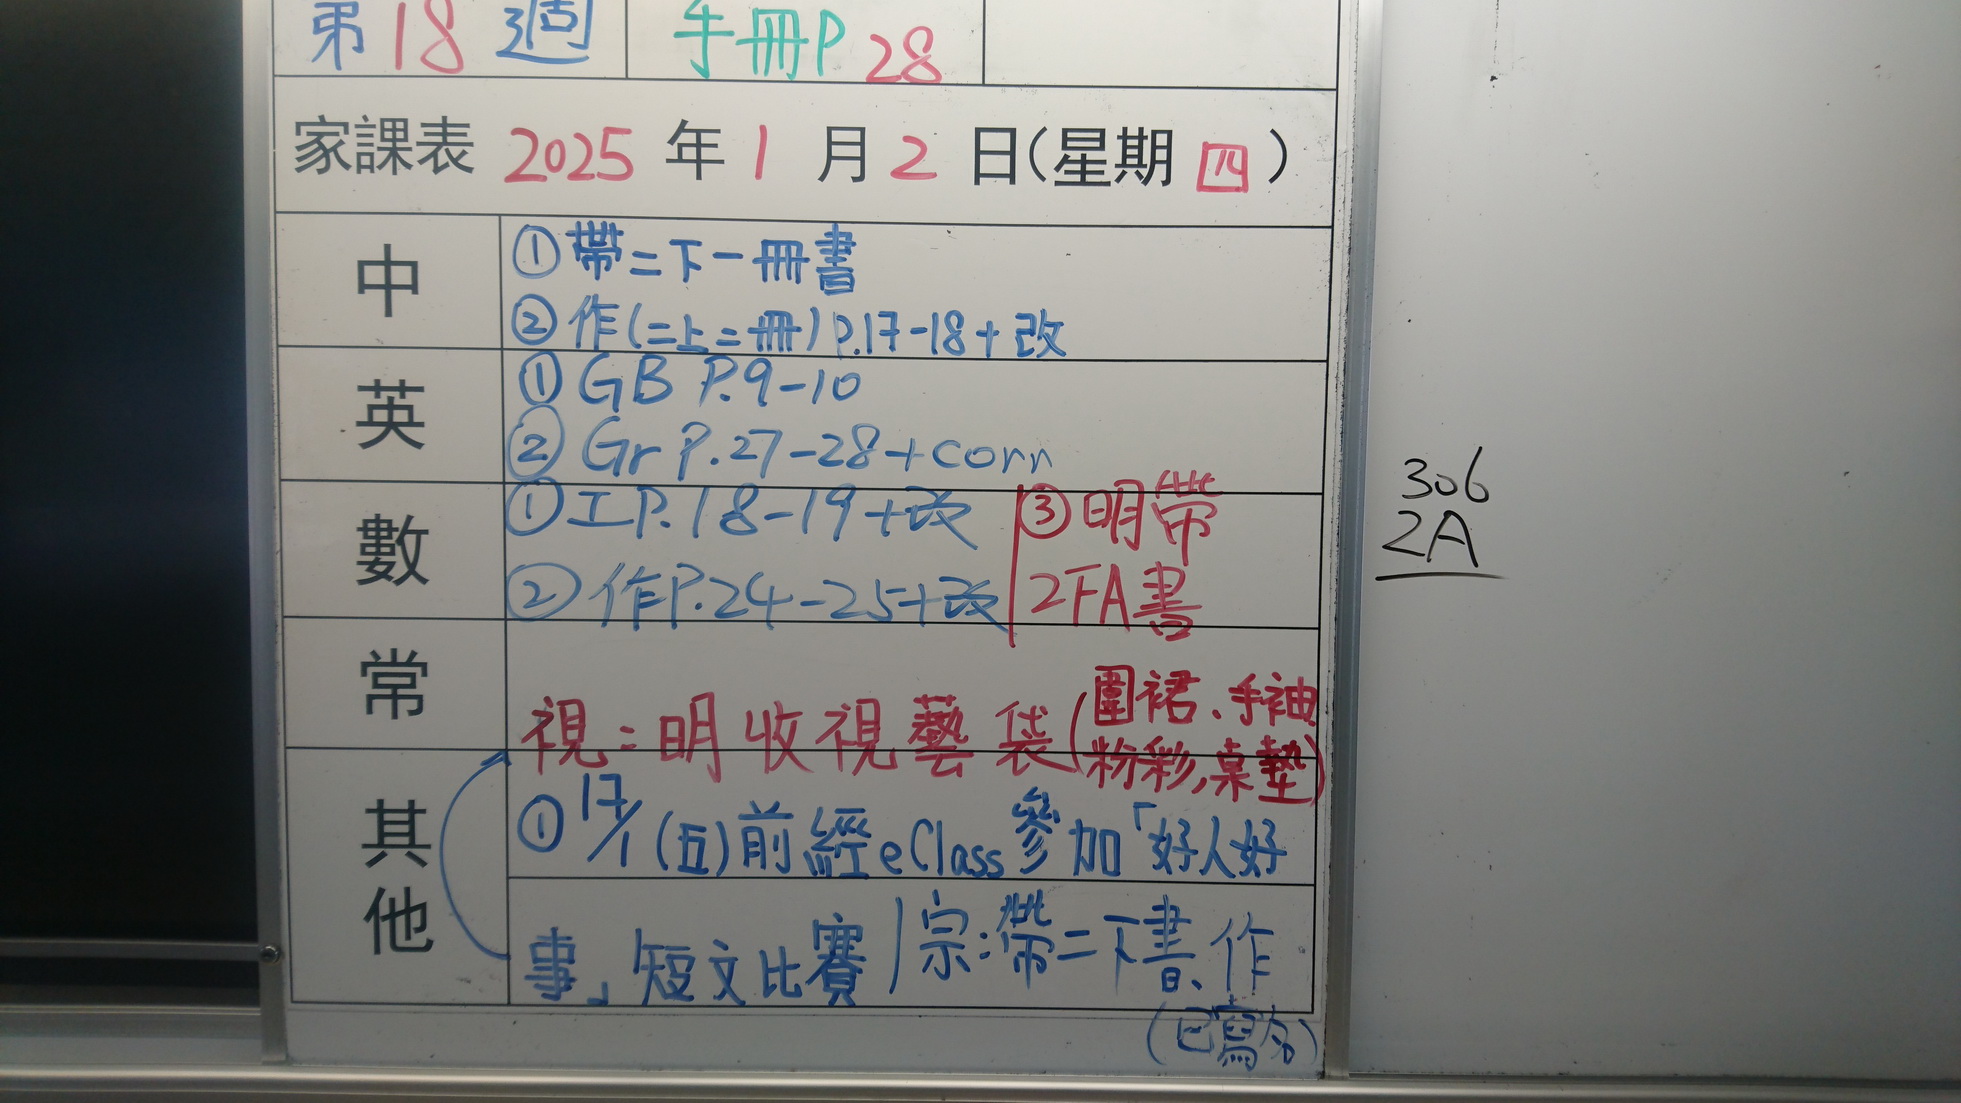 第18週 手冊P28
家課表 2025年1月2日(星期四)
中
①帶二下一冊書
②作(二上二冊)P.17-18+改
英
①GB P.9-10
②Gr P.27-28+corr
數
①工P.18-19+改
②作P.24-25+改
③明帶
2FA書
常
視:明收視藝袋(圍裙、手袖
粉彩,桌墊)
其他
①17/1(五)前經eClass參加「好人好
事」短文比賽/宗:帶二下書、作
(已寫名)
306
2A